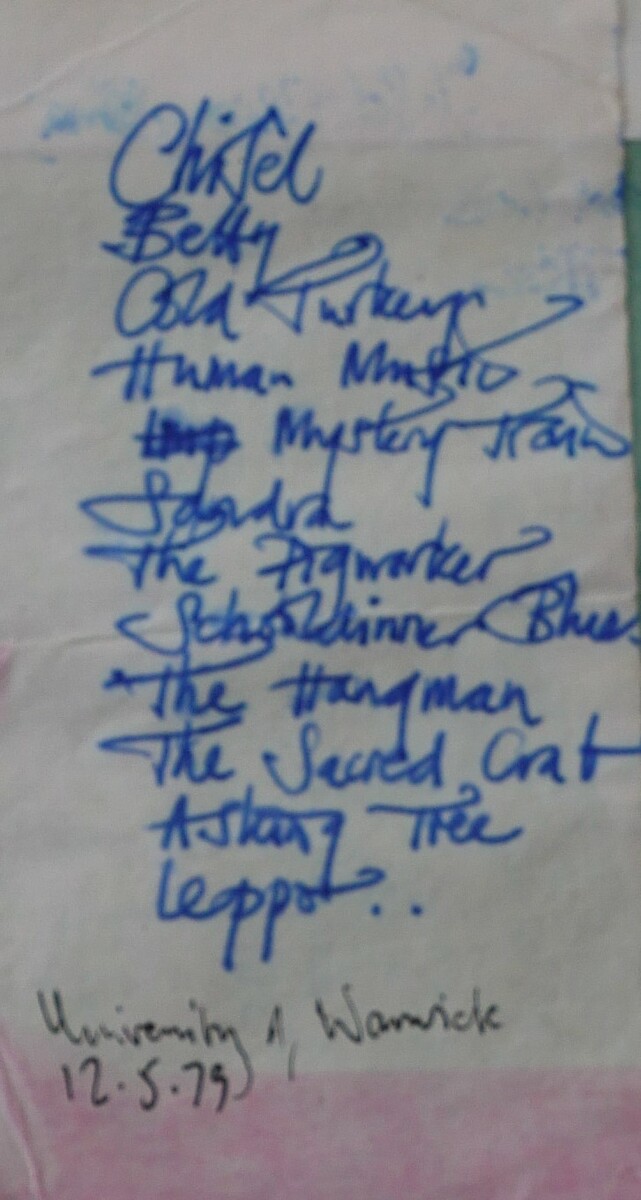 Betty
Cold Turkey
Human Music
Mystery Train
Sandra
The Pigworker
Schooldinner Blues
The Hangman
The Sacred Crab
Asking Tree
Leppo ..
University of Warwick
12.5.79